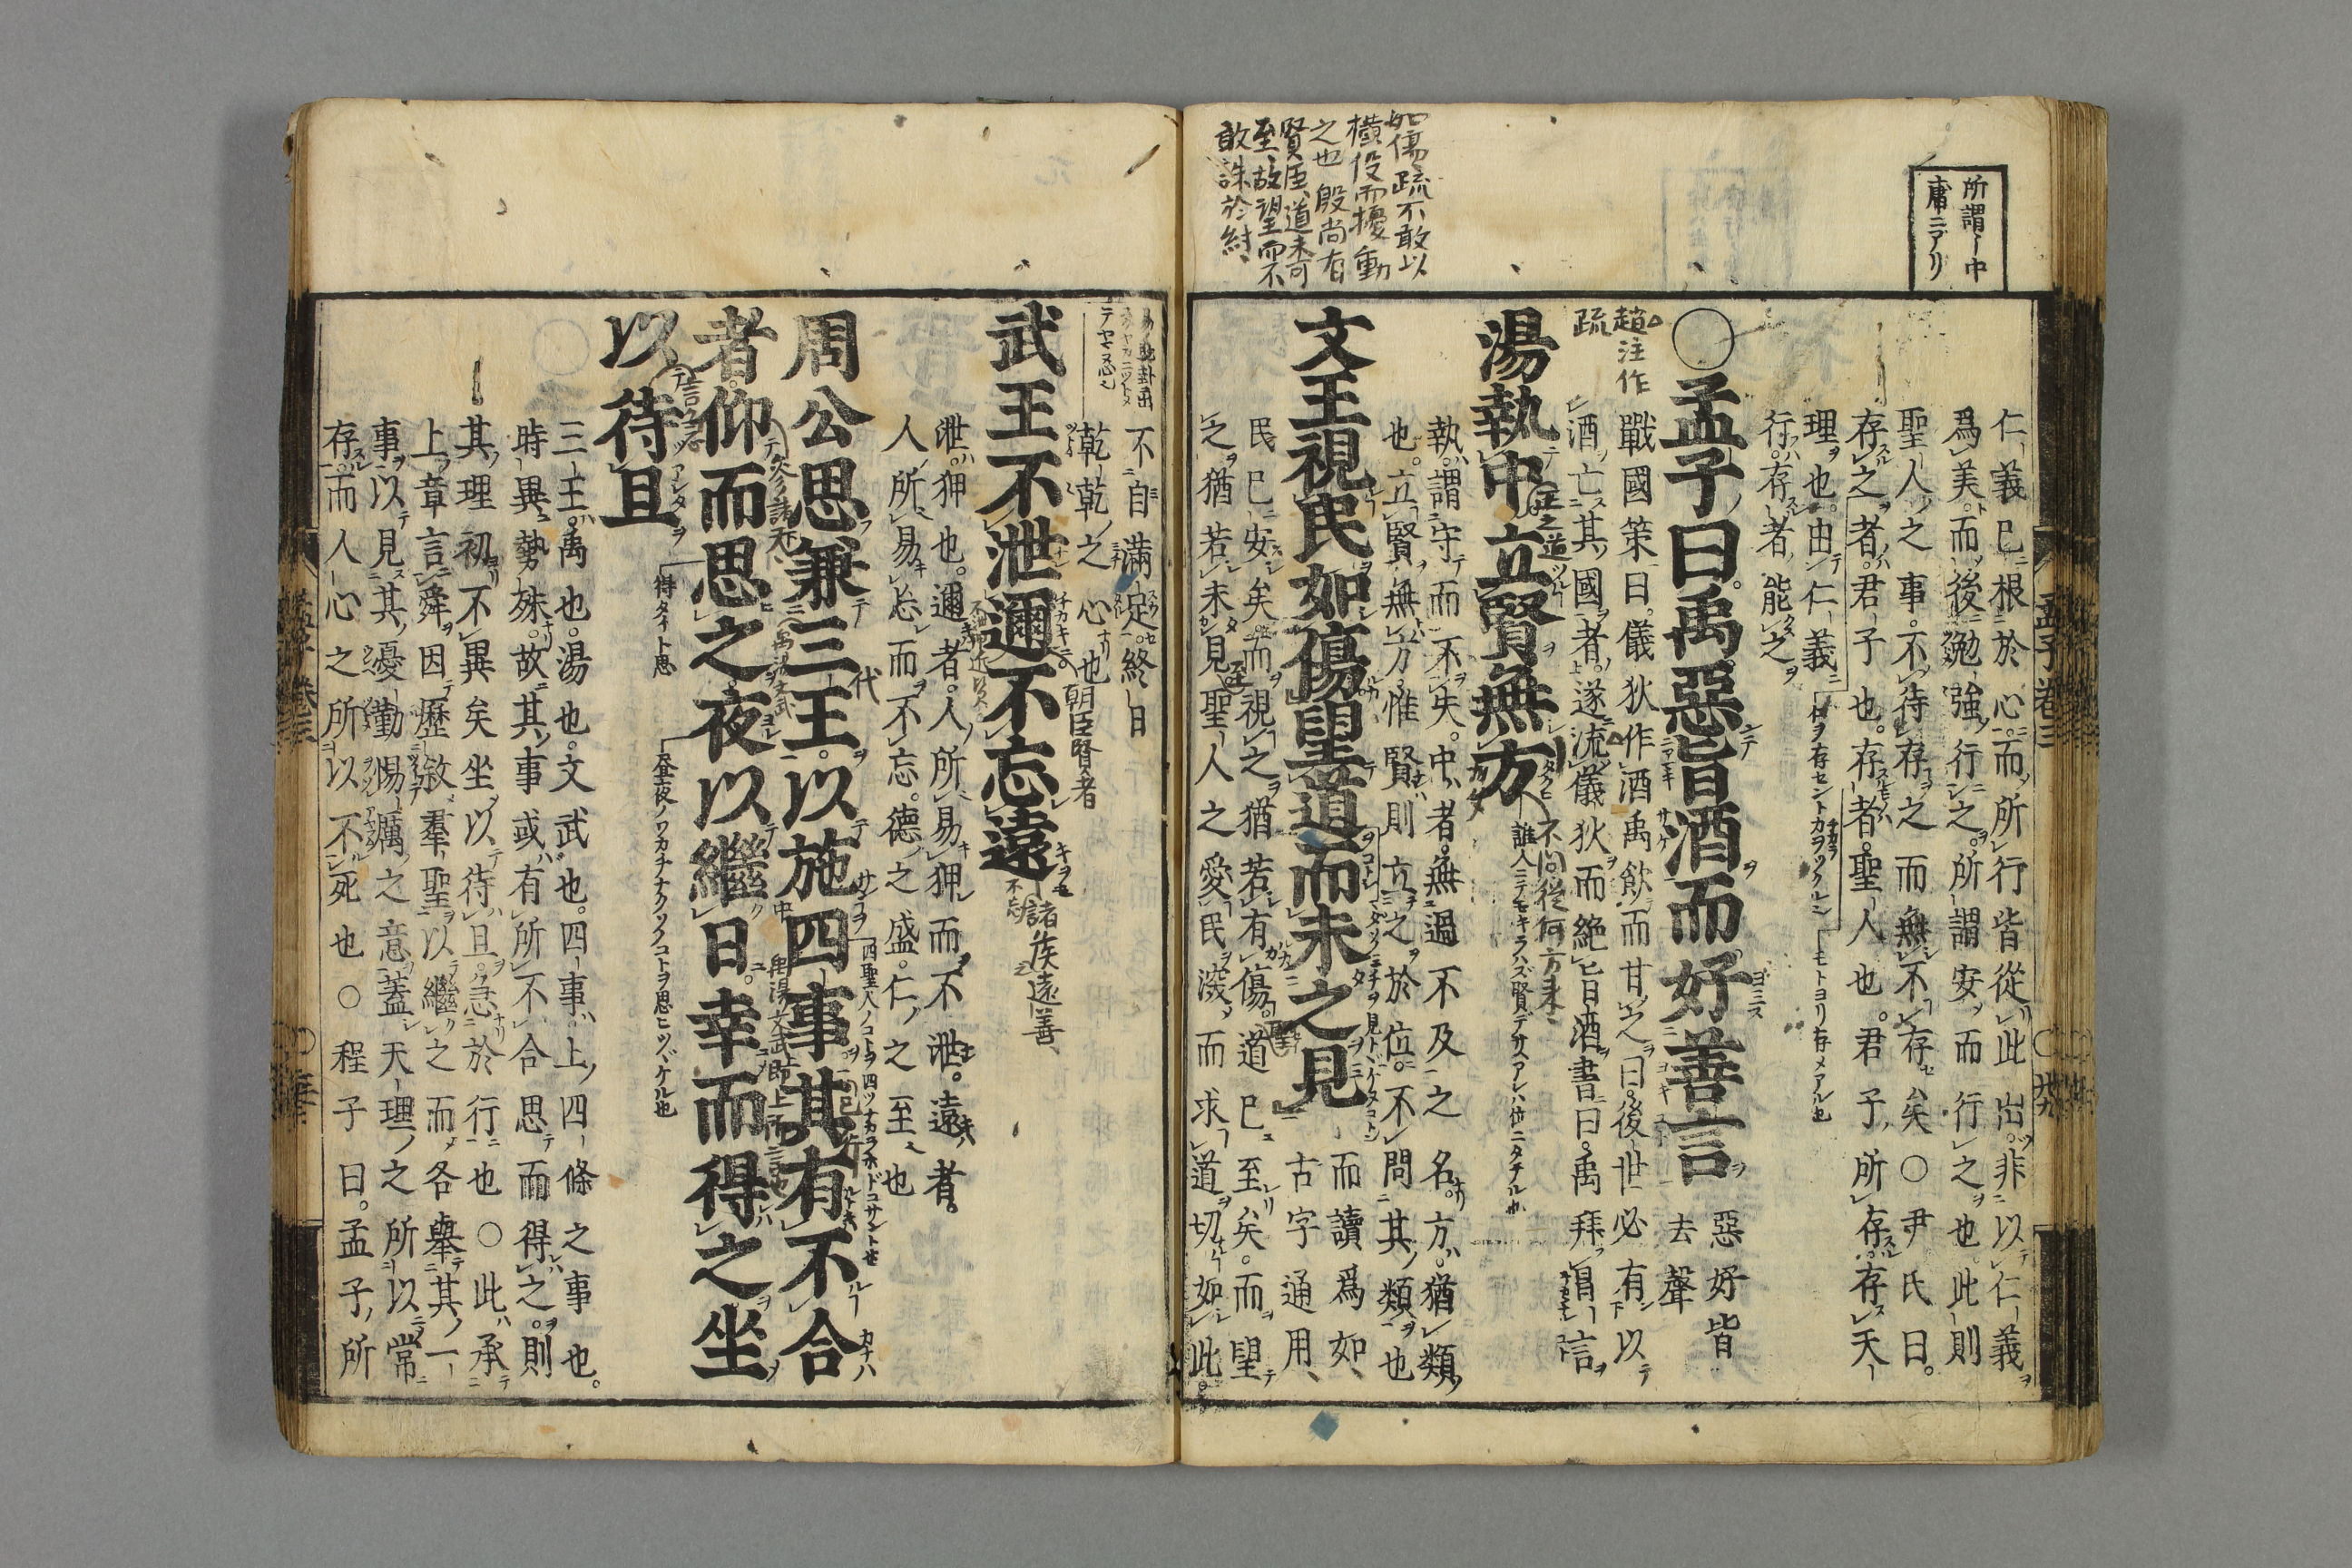 所謂中
庸ニアリ
如傷疏不敢以
横役而擾動
之也殷尚有
賢臣道未可
至故望而不
敢誅於紂
仁義已根於心而所行皆從此出非以仁義
爲美而後勉強行之所謂安而行之也此則
聖人之事不待存之而無不存矣○尹氏曰
存之者君子也存者聖人也君子所存存天
理也由仁義
行存者能之
○孟子曰禹惡旨酒而好善言
惡好皆
去聲
趙注作
疏
戰國策曰儀狄作酒禹飲而甘之曰後世必有以
酒亡其國者遂流儀狄而絶旨酒書曰禹拜昌言
湯執中立賢無方
不問從何方來
誰人ニテモキラハズ賢デサヘアレハ位ニタテル也
執謂守而不失中者無過不及之名方猶類
也立賢無方惟賢則立之於位不問其類也
文王視民如傷望道而未之見
而讀爲如
古字通用
民已安矣而視之猶若有傷道已至矣而望
之猶若未見聖人之愛民深而求道切如此
不自滿足終日
乾乾之心也
武王不泄邇不忘遠
朝臣賢者
諸侯遠善
泄狎也邇者人所易狎而不泄遠者
人所易忘而不忘德之盛仁之至也
周公思兼三王以施四事其有不合
者仰而思之夜以繼日幸而得之坐
以待且
得タイト思
昼夜ノワカチナクツクコトヲ思ヒツヾケル也
三王禹也湯也文武也四事上四條之事也
時異勢殊故其事或有所不合思而得之則
其理初不異矣坐以待旦急於行也○此承
上章言舜因歷敘羣聖以繼之而各舉其一
事以見其憂勤惕厲之意蓋天理之所以常
存而人心之所以不死也○程子曰孟子所
孟子卷三